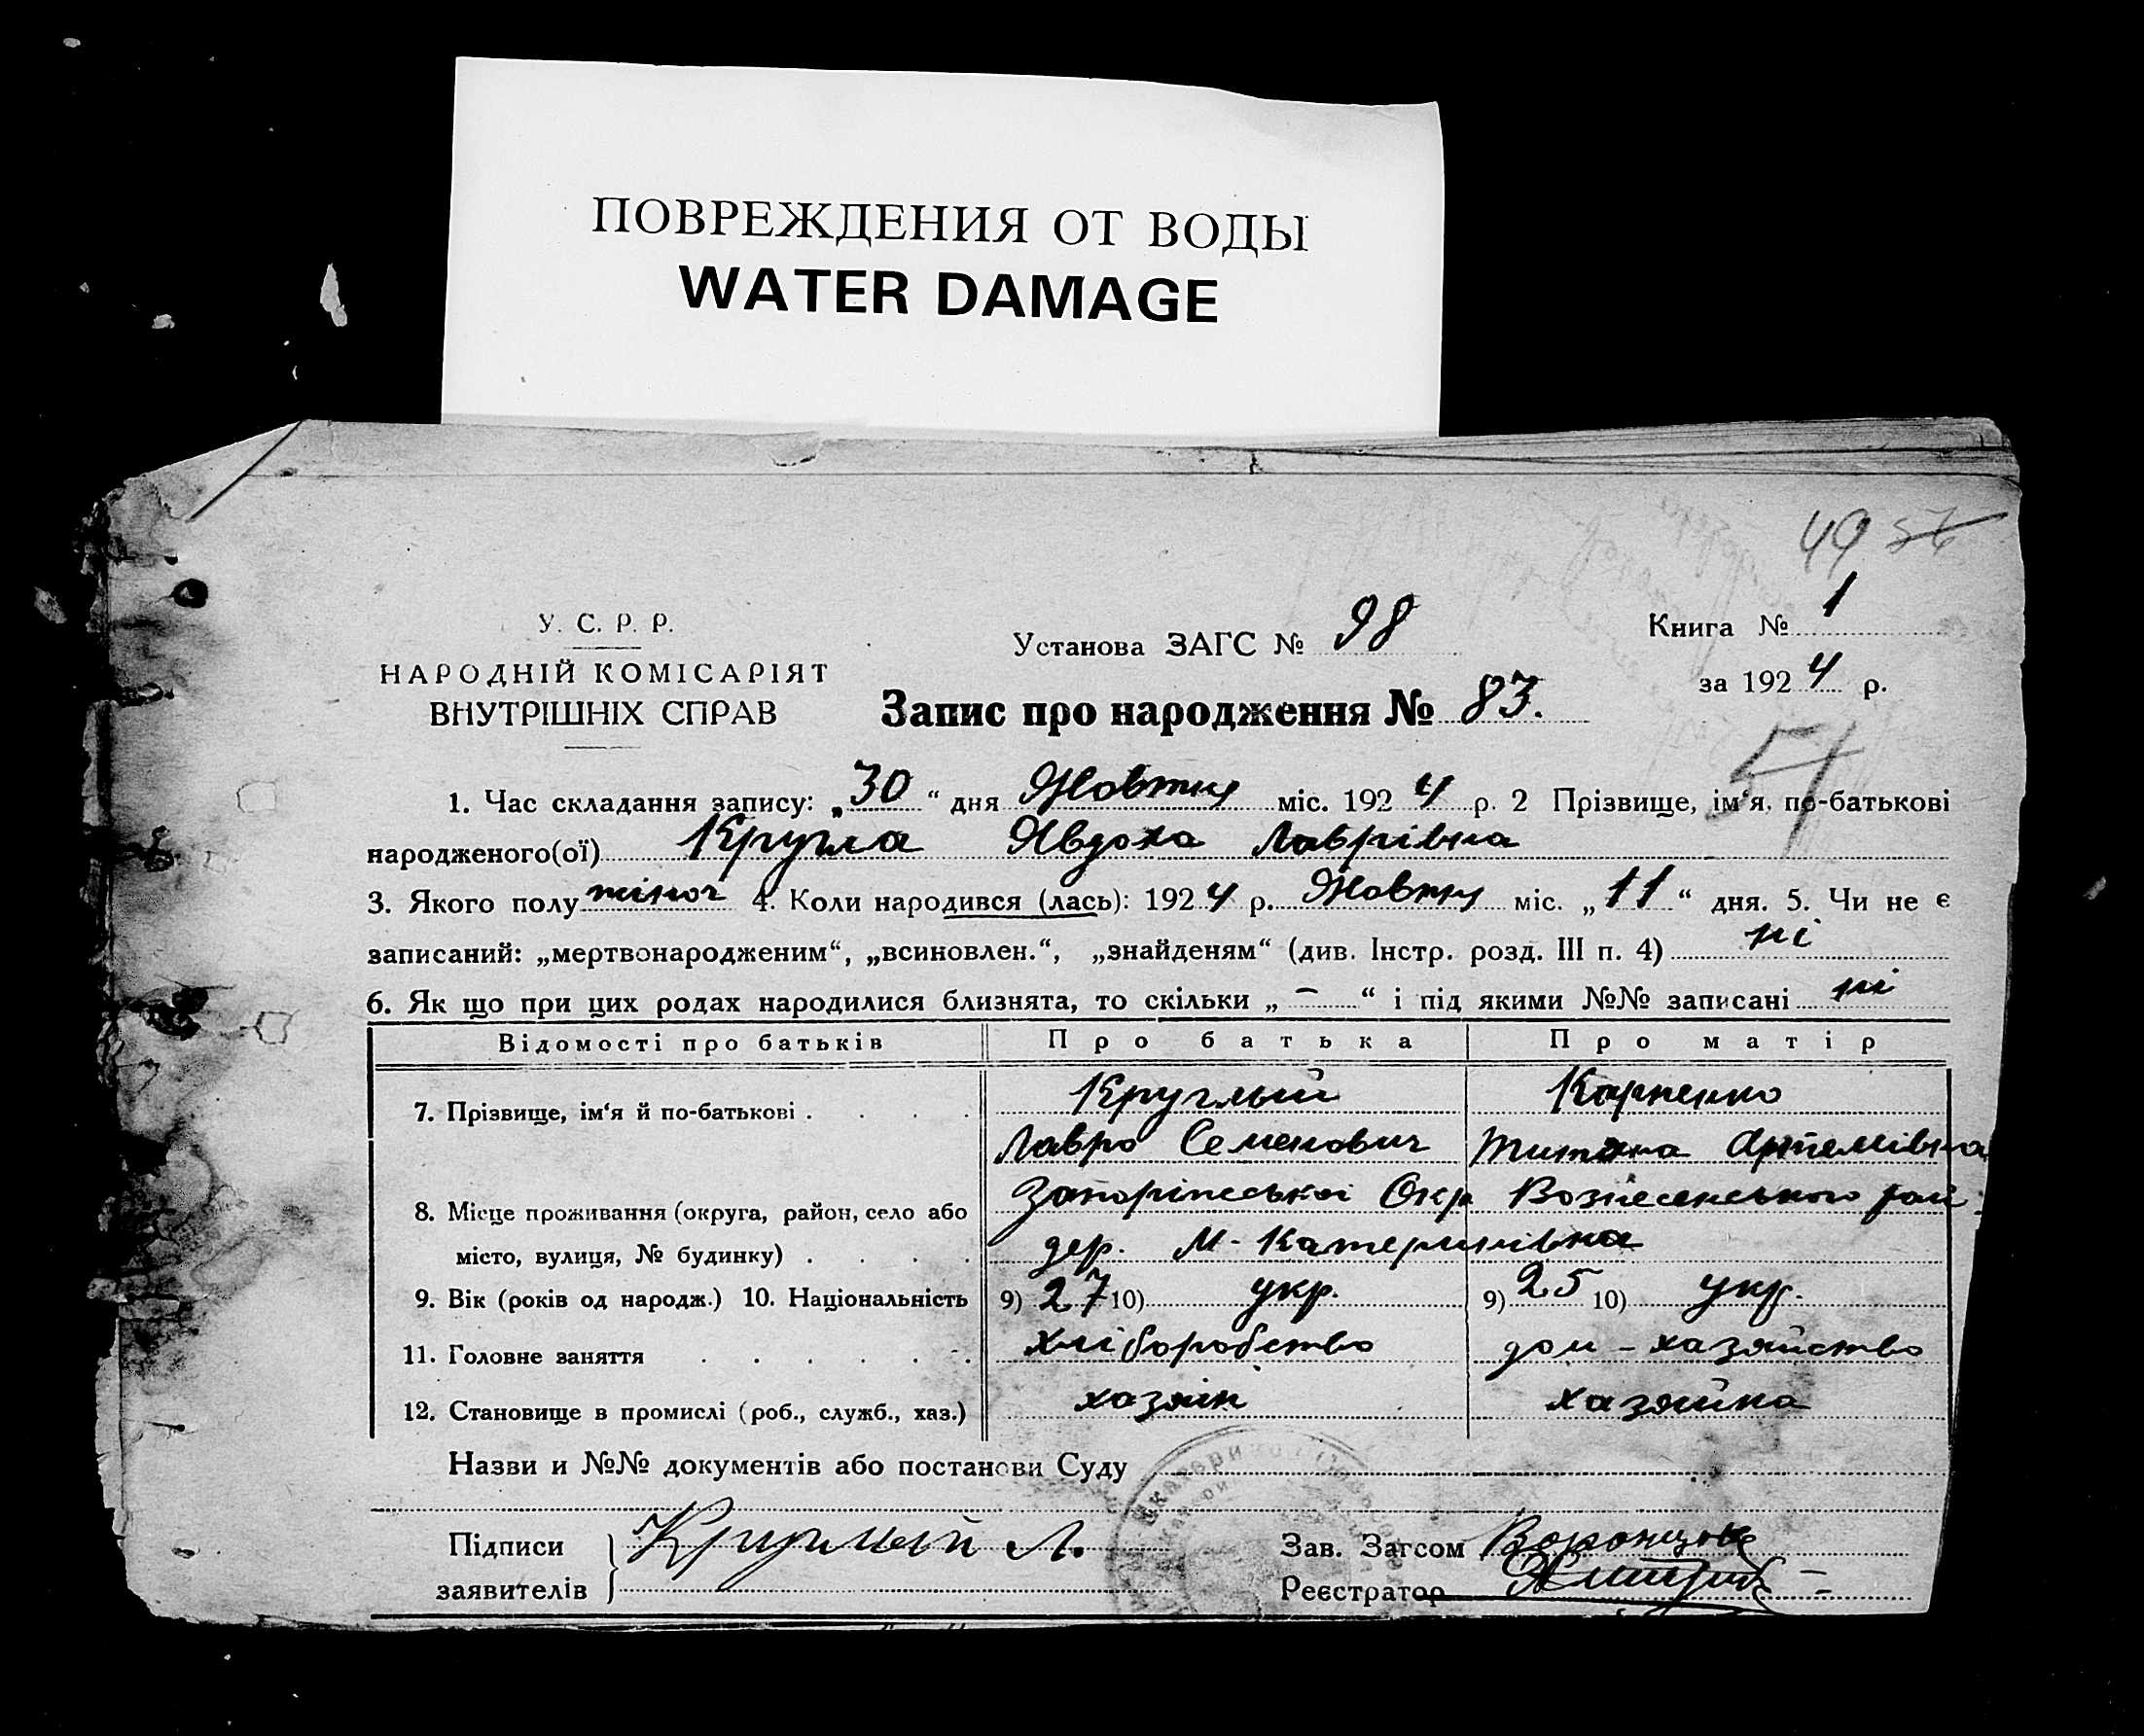 ПОВРЕЖДЕНИЯ ОТ ВОДЫ
WATER DAMAGE
49
У. С. Р. Р.
НАРОДНІЙ КОМІСАРІЯТ
ВНУТРІШНІХ СПРАВ
Установа ЗАГС № 98
Книга № 1
за 1924 р.
Запис про народження № 83.
51
1. Час складання запису: „30“ дня Жовтня міс. 1924 р. 2 Прізвище, ім'я, по-батькові
народженого(ої) Кругла Явдоха Лаврівна
3. Якого полу жіноч 4. Коли народився (лась): 1924 р. Жовтня міс. „11“ дня. 5. Чи не є
записаний: „мертвонародженим“, „всиновлен.“, „знайденям“ (див. Інстр. розд. III п. 4) ні
6. Як що при цих родах народилися близнята, то скільки „-“ і під якими №№ записані ні
Відомості про батьків Про батька Про матір
7. Прізвище, ім'я й по-батькові . . . . Круглый Карпенко
Лавро Семенович Титяна Артемівна
8. Місце проживання (округа, район, село або Запоріжської Окр Вознесенського рай.
місто, вулиця, № будинку) . . . . дер. М-Катеринівка
9. Вік (років од народж.) 10. Національність 9) 27 10) укр. 9) 25 10) укр.
11. Головне заняття . . . . . . хліборобство дом-хазяйство
12. Становище в промислі (роб., служб., хаз.) хазяін хазяйка
Назви и №№ документів або постанови Суду
Підписи Круглый Л. Зав. Загсом
заявителів Реєстратор